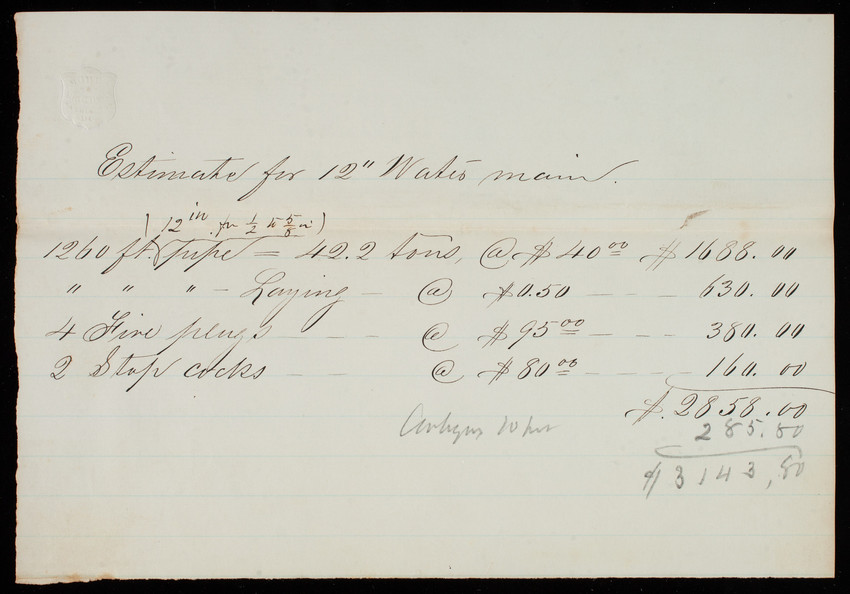 Estimate for 12" Water main.
(12 in for 1/2 to 5/8 in)
1260 ft. Pipe = 42.2 tons, @ $40 00 $1688.00
" " " - Laying - @ $0.50 - - - 630.00
4 Fire plugs - - - @ $95 00 - - 380.00
2 Stop cocks - - - @ $80 00 - - - 160.00
$.2858.00
10 per
285.80
$3143,80